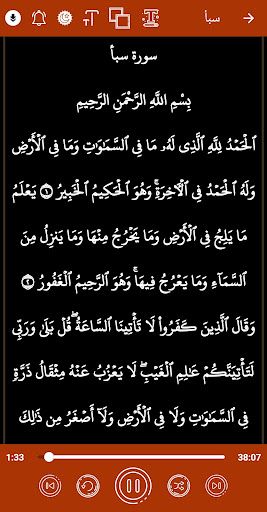 سبأ
سورة سبأ
بِسْمِ اللَّهِ الرَّحْمَٰنِ الرَّحِيمِ
ٱلْحَمْدُ لِلَّهِ ٱلَّذِى لَهُۥ مَا فِى ٱلسَّمَٰوَٰتِ وَمَا فِى ٱلْأَرْضِ
وَلَهُ ٱلْحَمْدُ فِى ٱلْءَاخِرَةِۚ وَهُوَ ٱلْحَكِيمُ ٱلْخَبِيرُ ١ يَعْلَمُ
مَا يَلِجُ فِى ٱلْأَرْضِ وَمَا يَخْرُجُ مِنْهَا وَمَا يَنزِلُ مِنَ
ٱلسَّمَآءِ وَمَا يَعْرُجُ فِيهَاۚ وَهُوَ ٱلرَّحِيمُ ٱلْغَفُورُ ٢
وَقَالَ ٱلَّذِينَ كَفَرُوا۟ لَا تَأْتِينَا ٱلسَّاعَةُۖ قُلْ بَلَىٰ وَرَبِّى
لَتَأْتِيَنَّكُمْ عَٰلِمِ ٱلْغَيْبِۖ لَا يَعْزُبُ عَنْهُ مِثْقَالُ ذَرَّةٍ
فِى ٱلسَّمَٰوَٰتِ وَلَا فِى ٱلْأَرْضِ وَلَآ أَصْغَرُ مِن ذَٰلِكَ
1:33 38:07